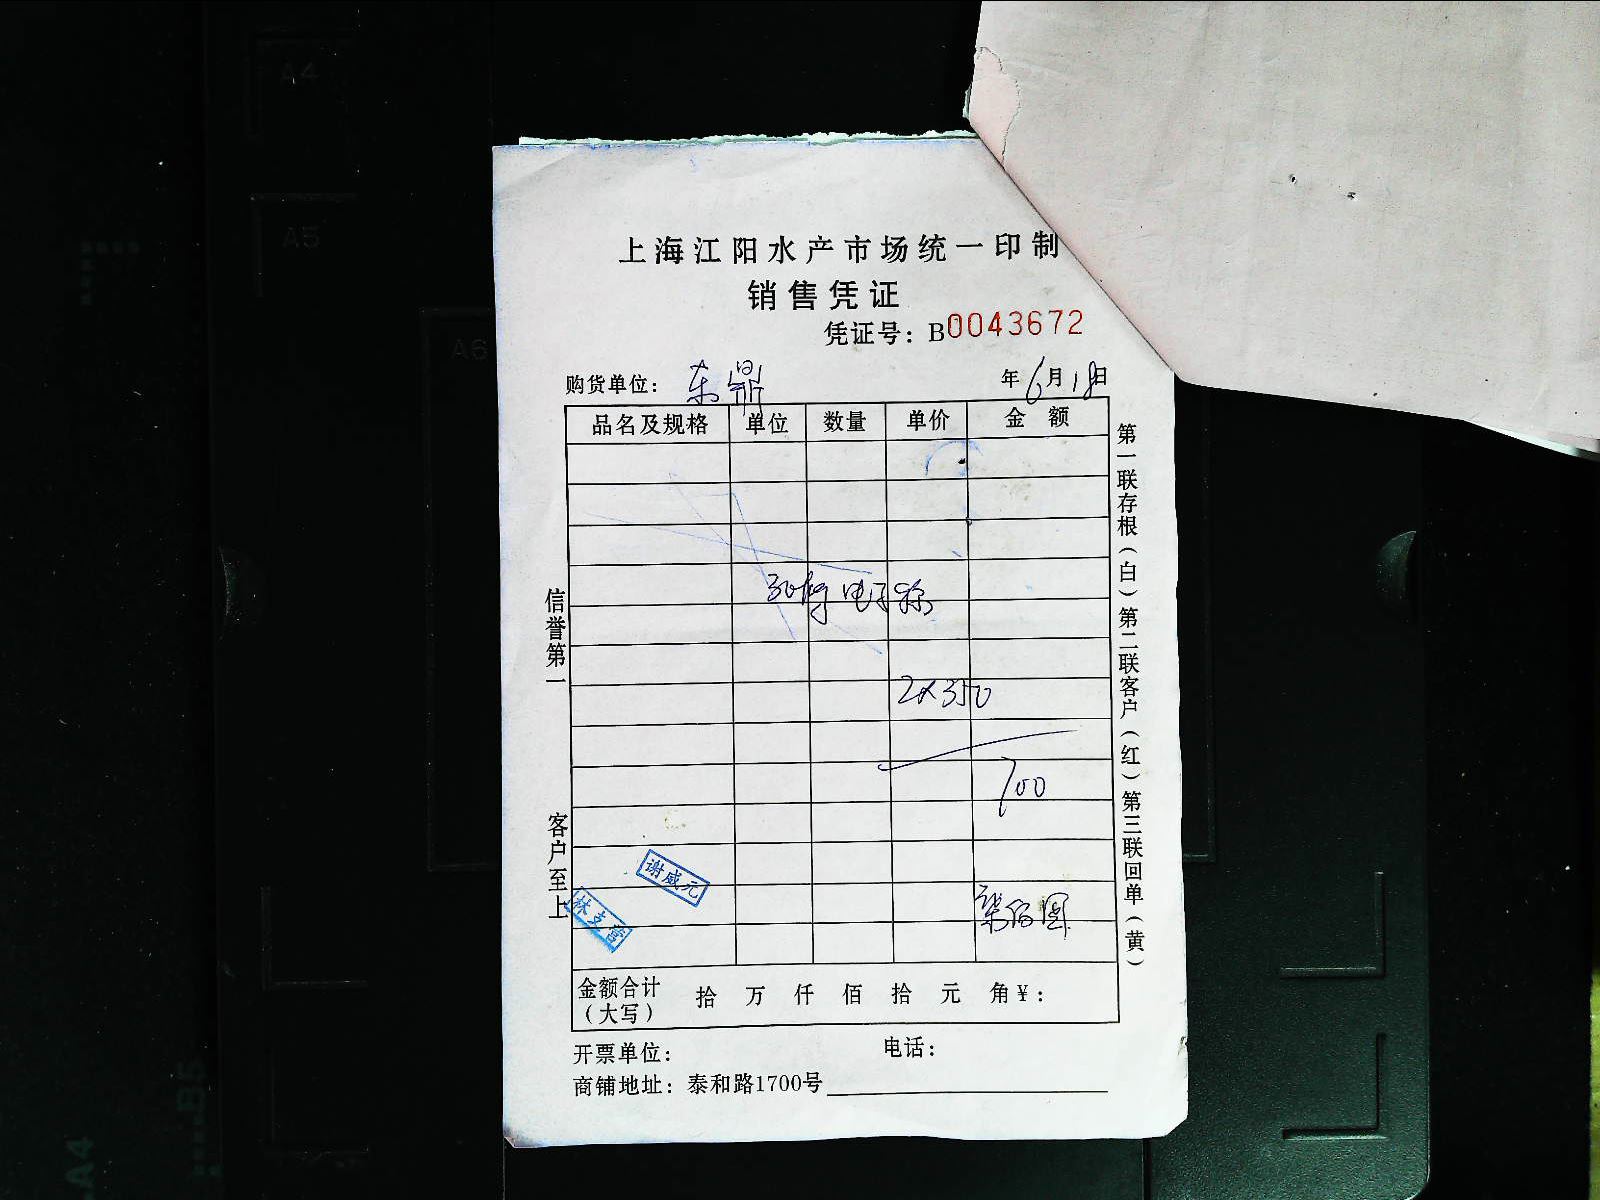 上海江阳水产市场统一印制
销售凭证
凭证号：B0043672
购货单位：东鼎 年6月18日
品名及规格 单位 数量 单价 金额
电子称
2×350
700
柒佰圆
谢威元
林支营
金额合计（大写） 拾 万 仟 佰 拾 元 角¥：
开票单位： 电话：
商铺地址：泰和路1700号
信誉第一 客户至上
第一联存根（白）第二联客户（红）第三联回单（黄）
A4
A5
A6
B5
A4